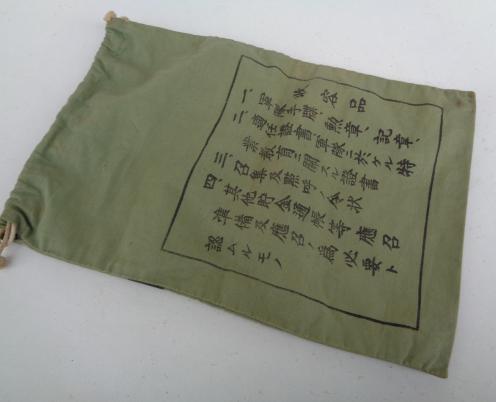 收容品
一、軍隊手牒、勲章、記章、
二、適任證書、軍隊ニ於ケル特
業教育ニ關スル證書
三、召集及點呼ノ令状
四、其他貯金通帳等應召
準備及應召ノ爲必要ト
認ムルモノ